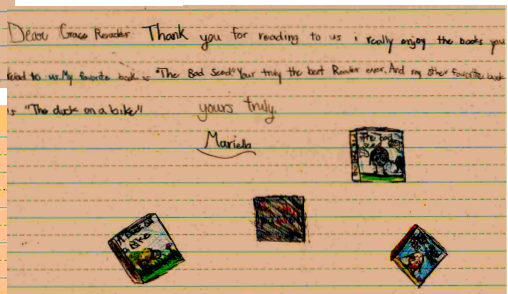 Dear Grace Reader Thank you for reading to us i really enjoy the books you
read to us. My favorite book is "The Bad Seed" Your truly the best Reader ever. And my other favorite book
is "The duck on a bike"
yours truly
Mariella
The bad
bike